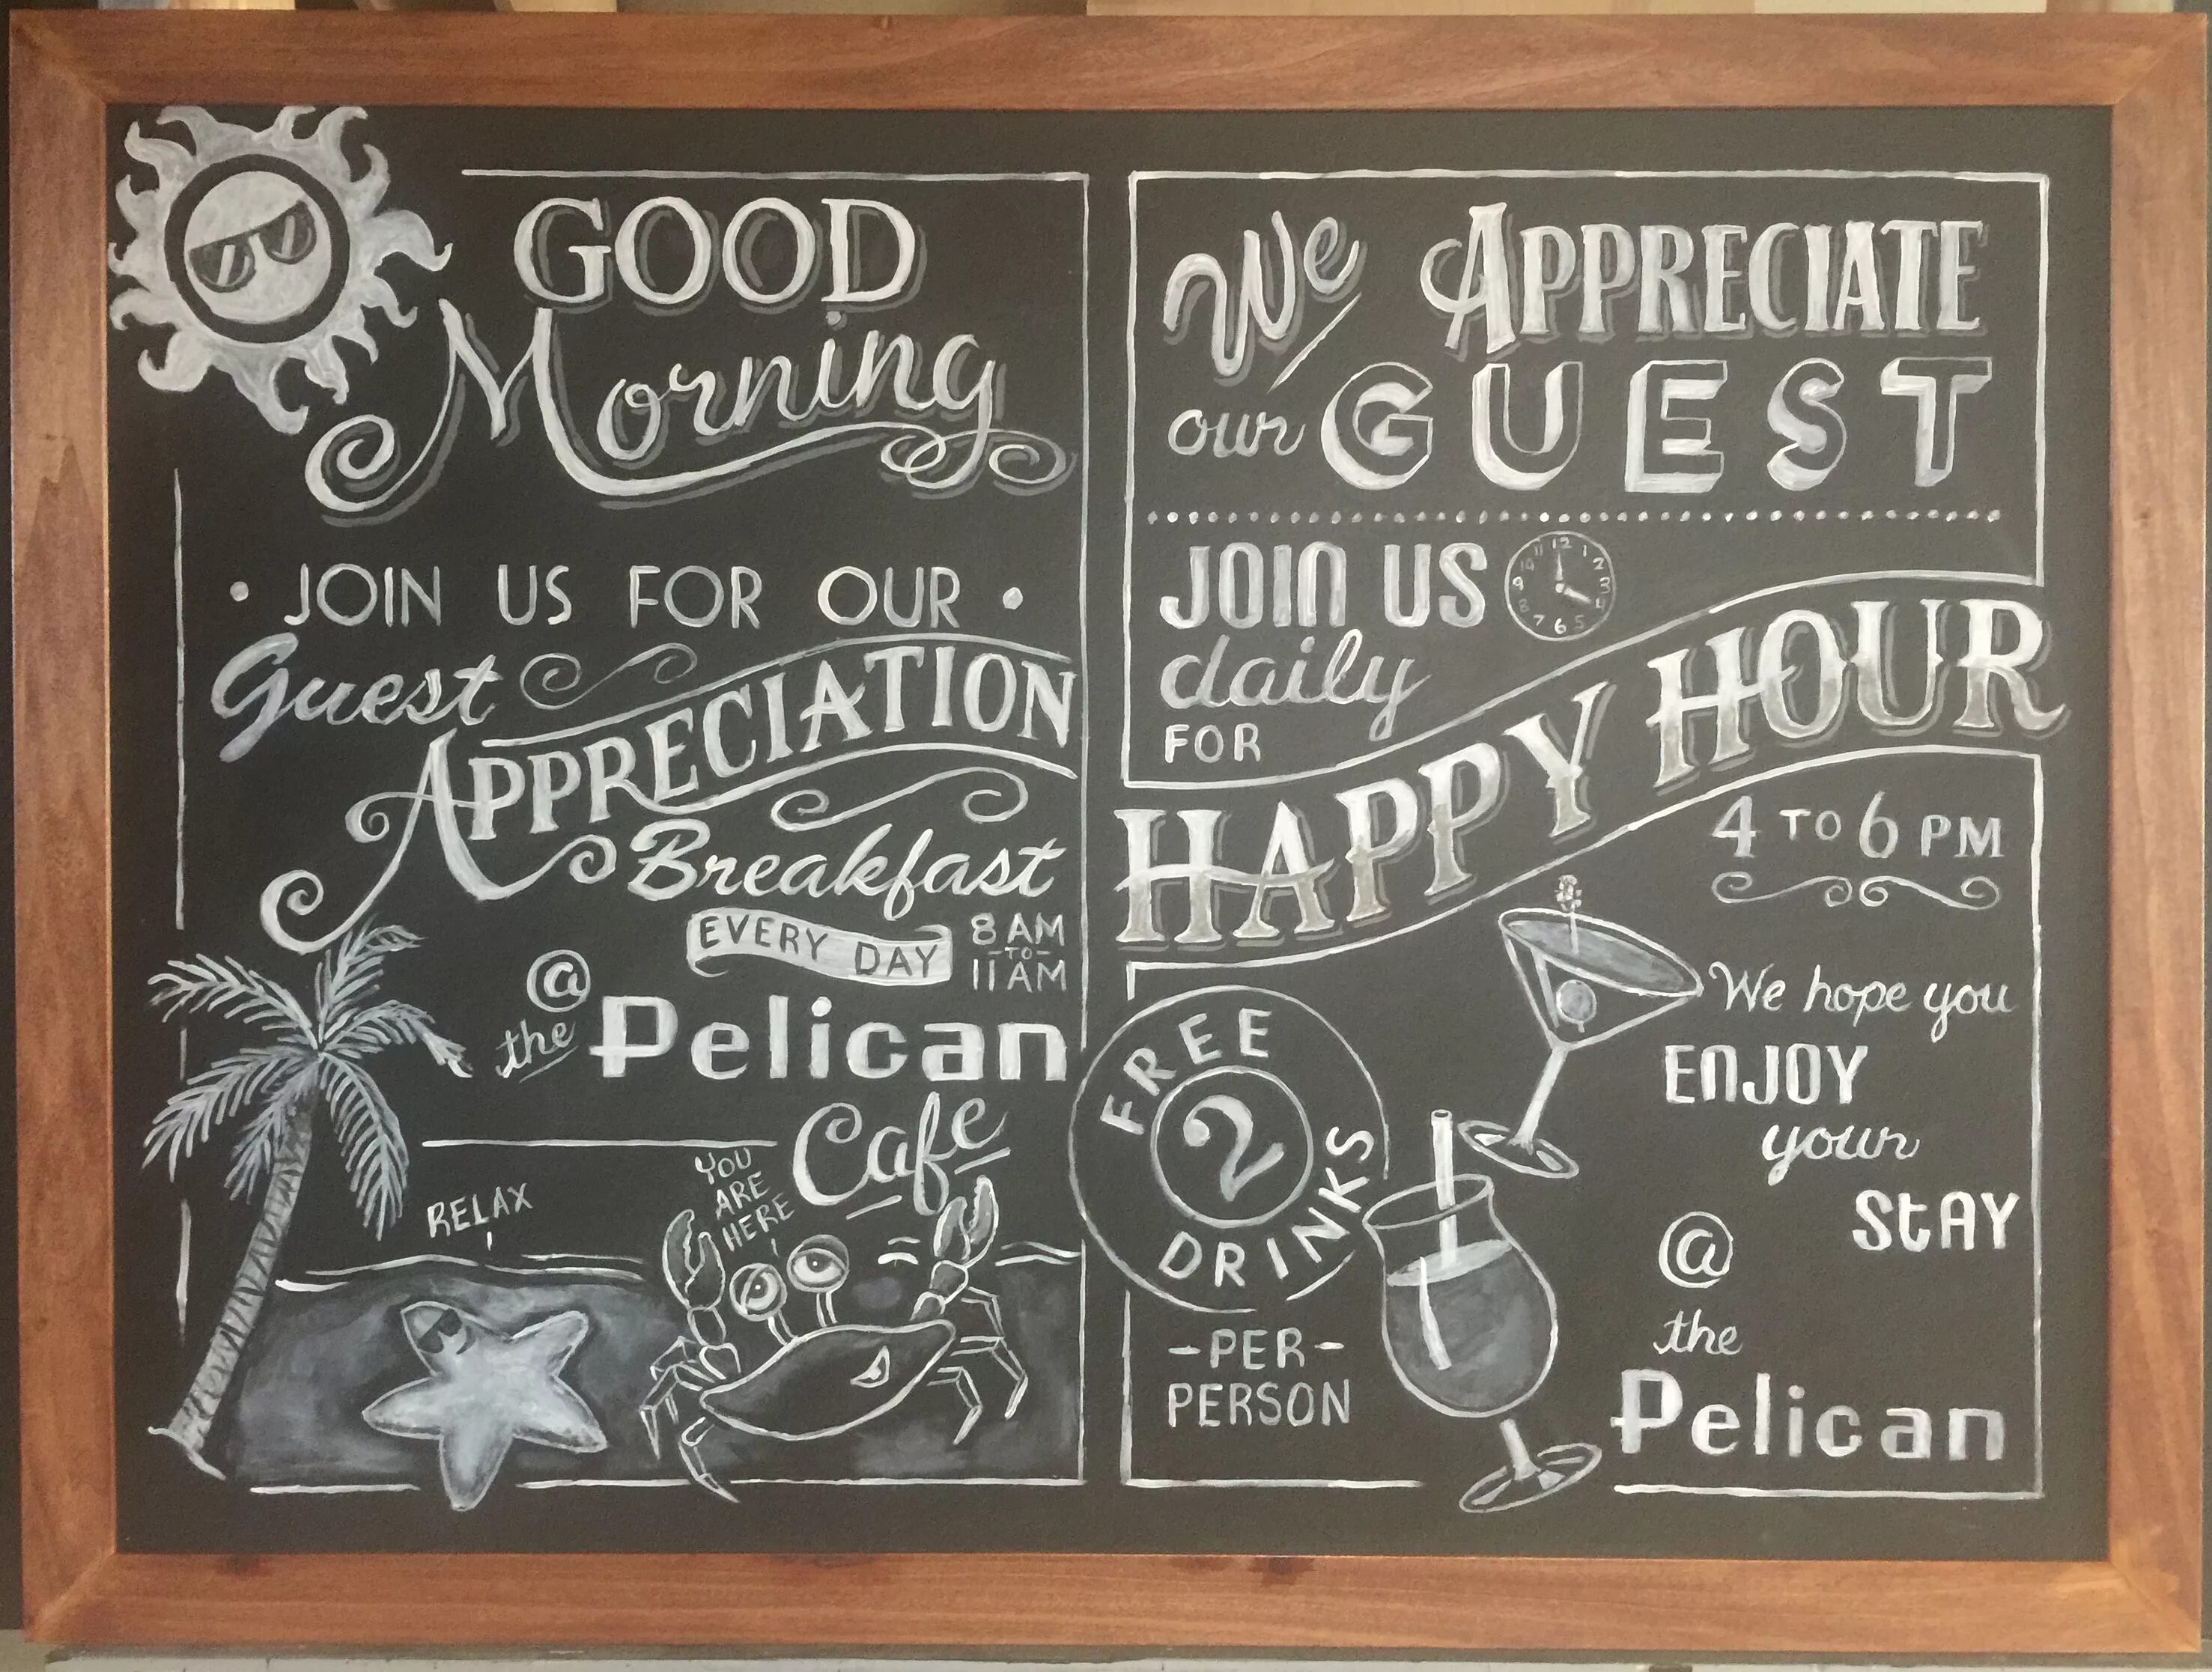 GOOD
Morning
• JOIN US FOR OUR •
Guest
APPRECIATION
Breakfast
EVERY DAY
8 AM
-TO-
11 AM
@
the Pelican
Cafe
RELAX
YOU
ARE
HERE
We APPRECIATE
our GUEST
JOIN US
12 1 2 3 4 5 6 7 8 9 10 11
daily
FOR
HAPPY HOUR
4 TO 6 PM
FREE
2
DRINKS
-PER-
PERSON
We hope you
ENJOY
your
StAY
@
the
Pelican